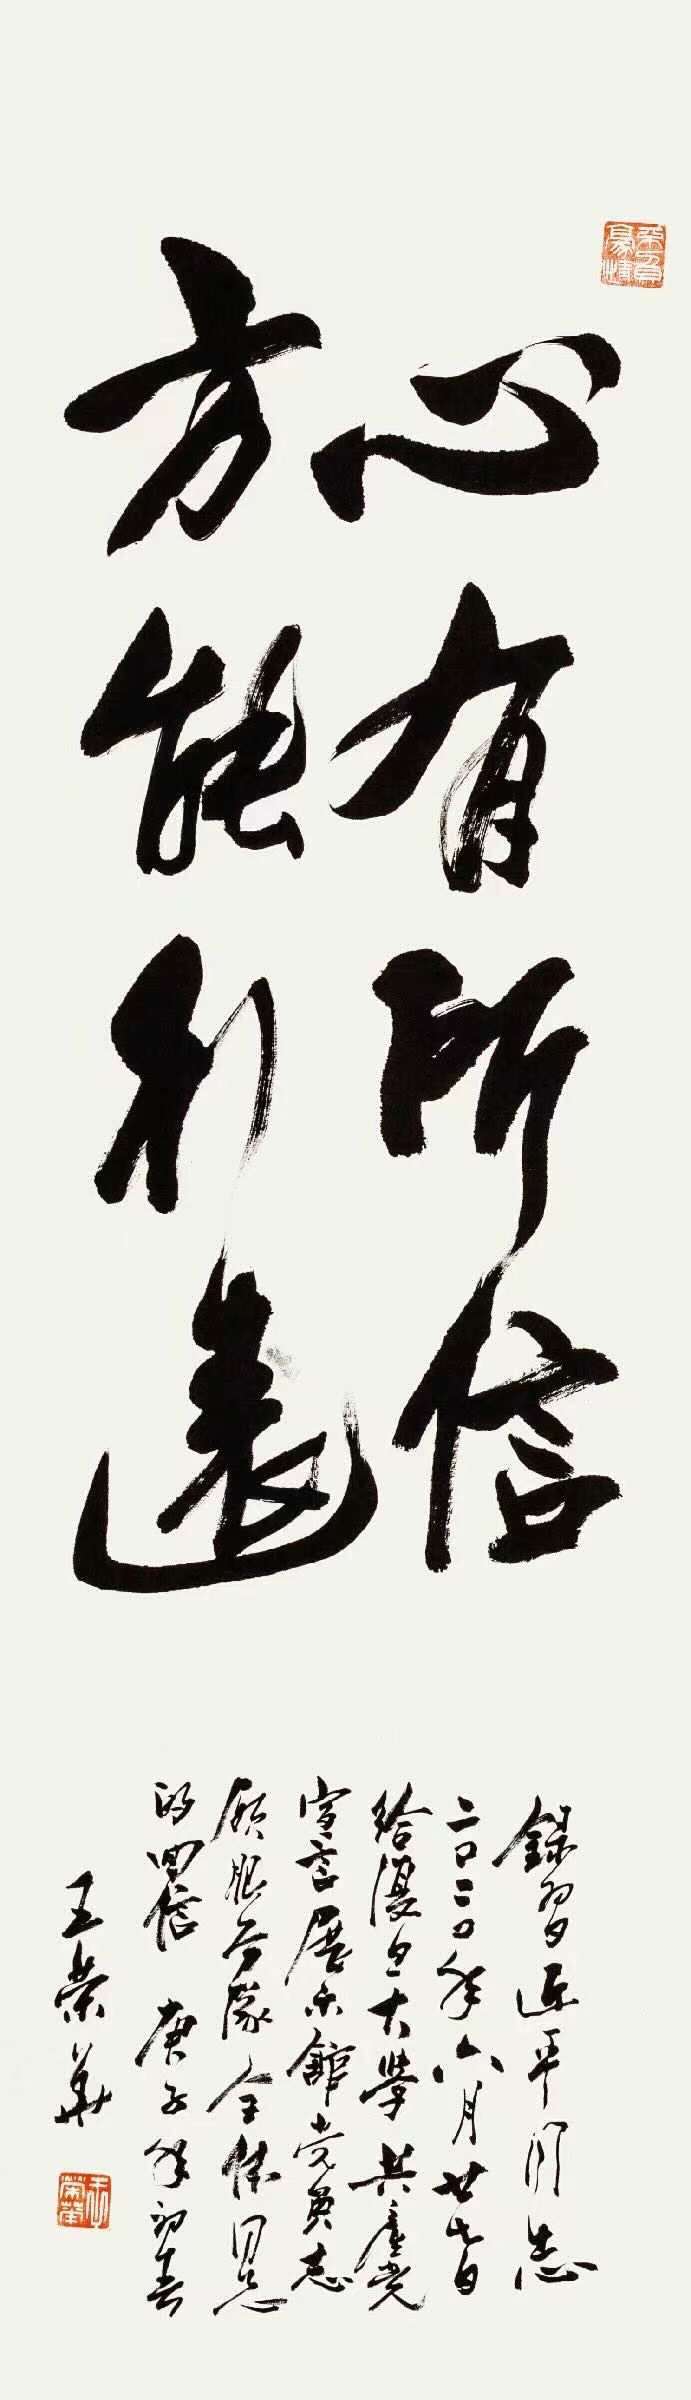 心有所信
方能行遠
錄習近平同志
二〇二〇年六月廿七日
給復旦大學共產党
宣言展示館党員志
願服務隊全体同志
的回信 庚子年初春
王榮華